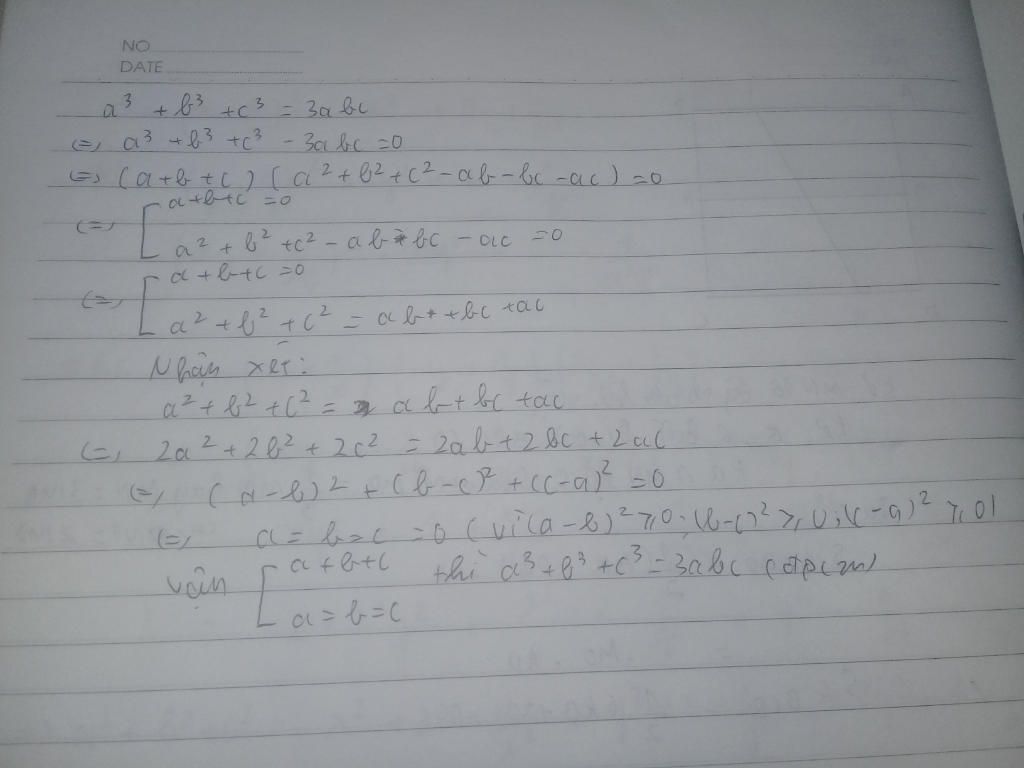 NO
DATE
a³ + b³ + c³ = 3abc
<=> a³ + b³ + c³ - 3abc = 0
<=> (a + b + c) (a² + b² + c² - ab - bc - ac) = 0
<=> [ a+b+c = 0
a² + b² + c² - ab - bc - ac = 0
<=> [ a + b + c = 0
a² + b² + c² = ab + bc + ac
Nhận xét:
a² + b² + c² = ab + bc + ac
<=> 2a² + 2b² + 2c² = 2ab + 2bc + 2ac
<=> (a-b)² + (b-c)² + (c-a)² = 0
<=> a = b = c = 0 (vì (a-b)² ≥ 0; (b-c)² ≥ 0; (c-a)² ≥ 0)
Vậy [ a + b + c thì a³ + b³ + c³ = 3abc (đpcm)
a = b = c